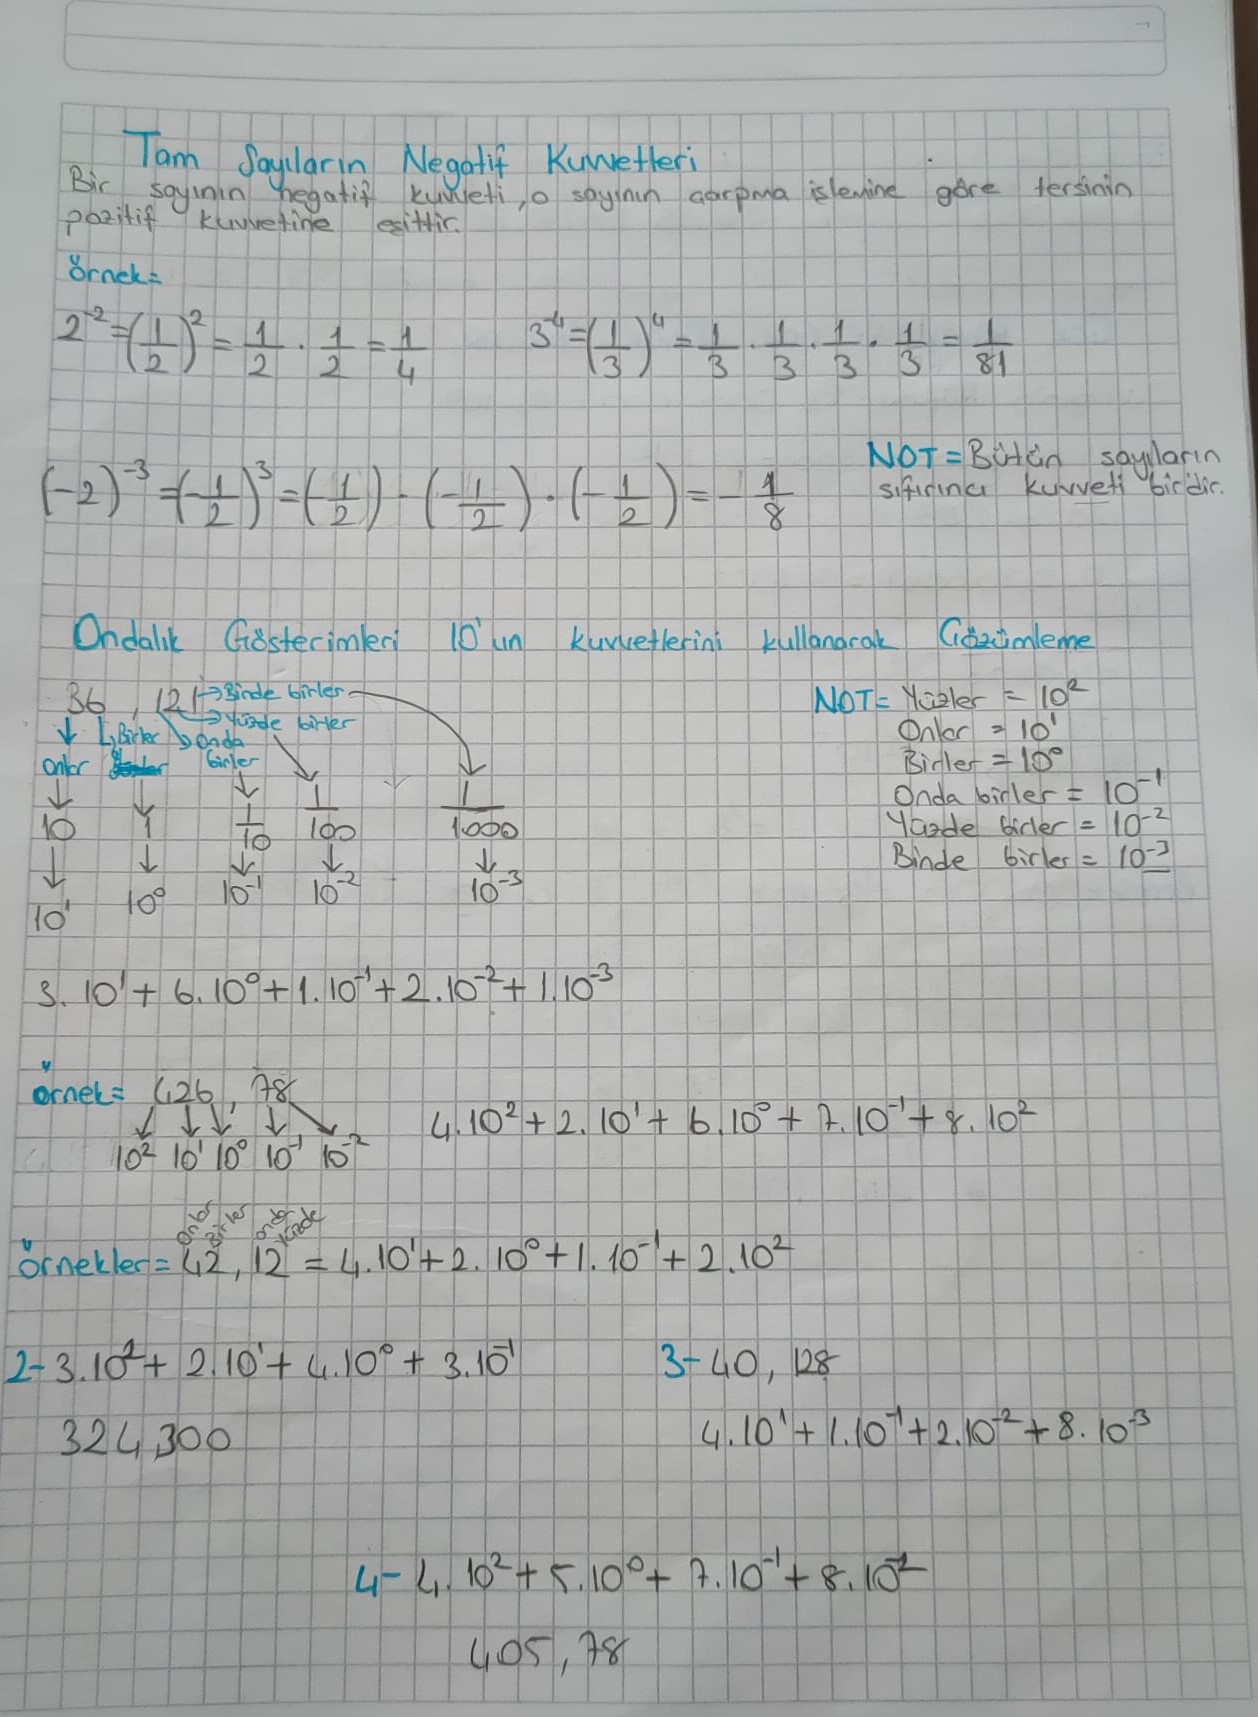 Tam Sayıların Negatif Kuvvetleri
Bir sayının negatif kuvveti, o sayının çarpma işlemine göre tersinin
pozitif kuvvetine eşittir.
Örnek=
2⁻² = (1/2)² = 1/2 · 1/2 = 1/4    3⁻⁴ = (1/3)⁴ = 1/3 · 1/3 · 1/3 · 1/3 = 1/81
(-2)⁻³ = (-1/2)³ = (-1/2) · (-1/2) · (-1/2) = -1/8
NOT = Bütün sayıların
sıfırıncı kuvveti birdir.
Ondalık Gösterimleri 10'un kuvvetlerini kullanarak Çözümleme
36, 121 → Binde birler
→ Yüzde birler
↳ Birler ↘ Onda
onlar birler
10 1 1/10 1/100 1/1000
10¹ 10⁰ 10⁻¹ 10⁻² 10⁻³
NOT = Yüzler = 10²
Onlar = 10¹
Birler = 10⁰
Onda birler = 10⁻¹
Yüzde birler = 10⁻²
Binde birler = 10⁻³
3.10¹ + 6.10⁰ + 1.10⁻¹ + 2.10⁻² + 1.10⁻³
örnek = 426, 78
10² 10¹ 10⁰ 10⁻¹ 10⁻²
4.10² + 2.10¹ + 6.10⁰ + 7.10⁻¹ + 8.10²
Onlar Birler onda Yüzde
örnekler = 42, 12 = 4.10¹ + 2.10⁰ + 1.10⁻¹ + 2.10²
2- 3.10² + 2.10¹ + 4.10⁰ + 3.10⁻¹
324,300
3- 40, 128
4.10¹ + 1.10⁻¹ + 2.10⁻² + 8.10⁻³
4- 4.10² + 5.10⁰ + 7.10⁻¹ + 8.10⁻²
405, 78